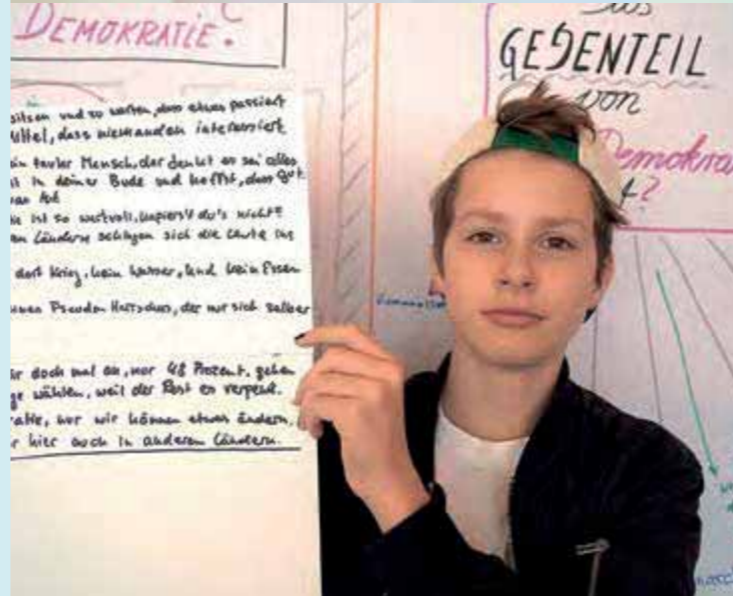 DEMOKRATIE?
sitzen und zu warten, dass etwas passiert
ittel, dass niemanden interessiert
in fauler Mensch, der denkt es sei alles
in deiner Bude und hoffst, dass Gott
tut
ist so wertvoll, kapierst du's nicht?
en Ländern schlagen sich die Leute ins
dort Krieg, kein Wasser, und kein Essen
einen Pseudo Herrscher, der nur sich selber
doch mal an, nur 48 Prozent, gehen
ge wählen, weil der Rest es verpennt.
atie, nur wir können etwas ändern,
r hier auch in anderen Ländern.
das
GEGENTEIL
von
Demokra
t?